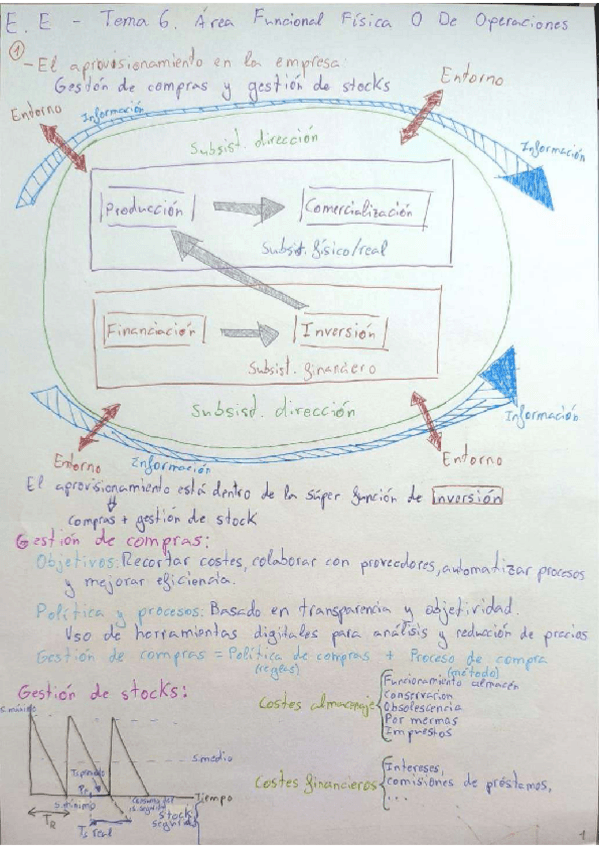 E. E - Tema 6. Área Funcional Física O De Operaciones
①
- El aprovisionamiento en la empresa:
Gestión de compras y gestión de stocks
Entorno
Entorno
Información
Información
Subsist. dirección
Producción
Comercialización
Subsist. físico/real
Financiación
Inversión
Subsist. financiero
Subsist. dirección
Información
Entorno
Información
Entorno
El aprovisionamiento está dentro de la súper función de Inversión
compras + gestión de stock
Gestión de compras:
Objetivos: Recortar costes, colaborar con proveedores, automatizar procesos
y mejorar eficiencia.
Política y procesos: Basado en transparencia y objetividad.
Uso de herramientas digitales para análisis y reducción de precios
Gestión de compras = Política de compras + Proceso de compra
(reglas)
(método)
Gestión de stocks:
Costes almacenaje
Funcionamiento almacén
Conservación
Obsolescencia
Por mermas
Impuestos
s.máximo
s.medio
Pe
s.mínimo
Tiempo
Stock
seguridad
TR
Ts real
Costes financieros
Intereses,
comisiones de préstamos,
...
1